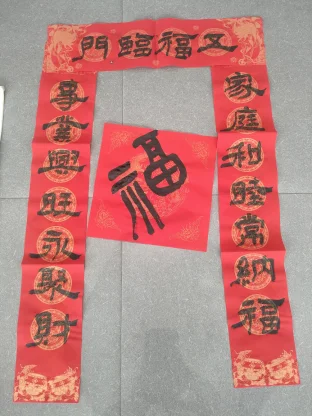 五福臨門
家庭和睦常納福
事業興旺永聚財
福